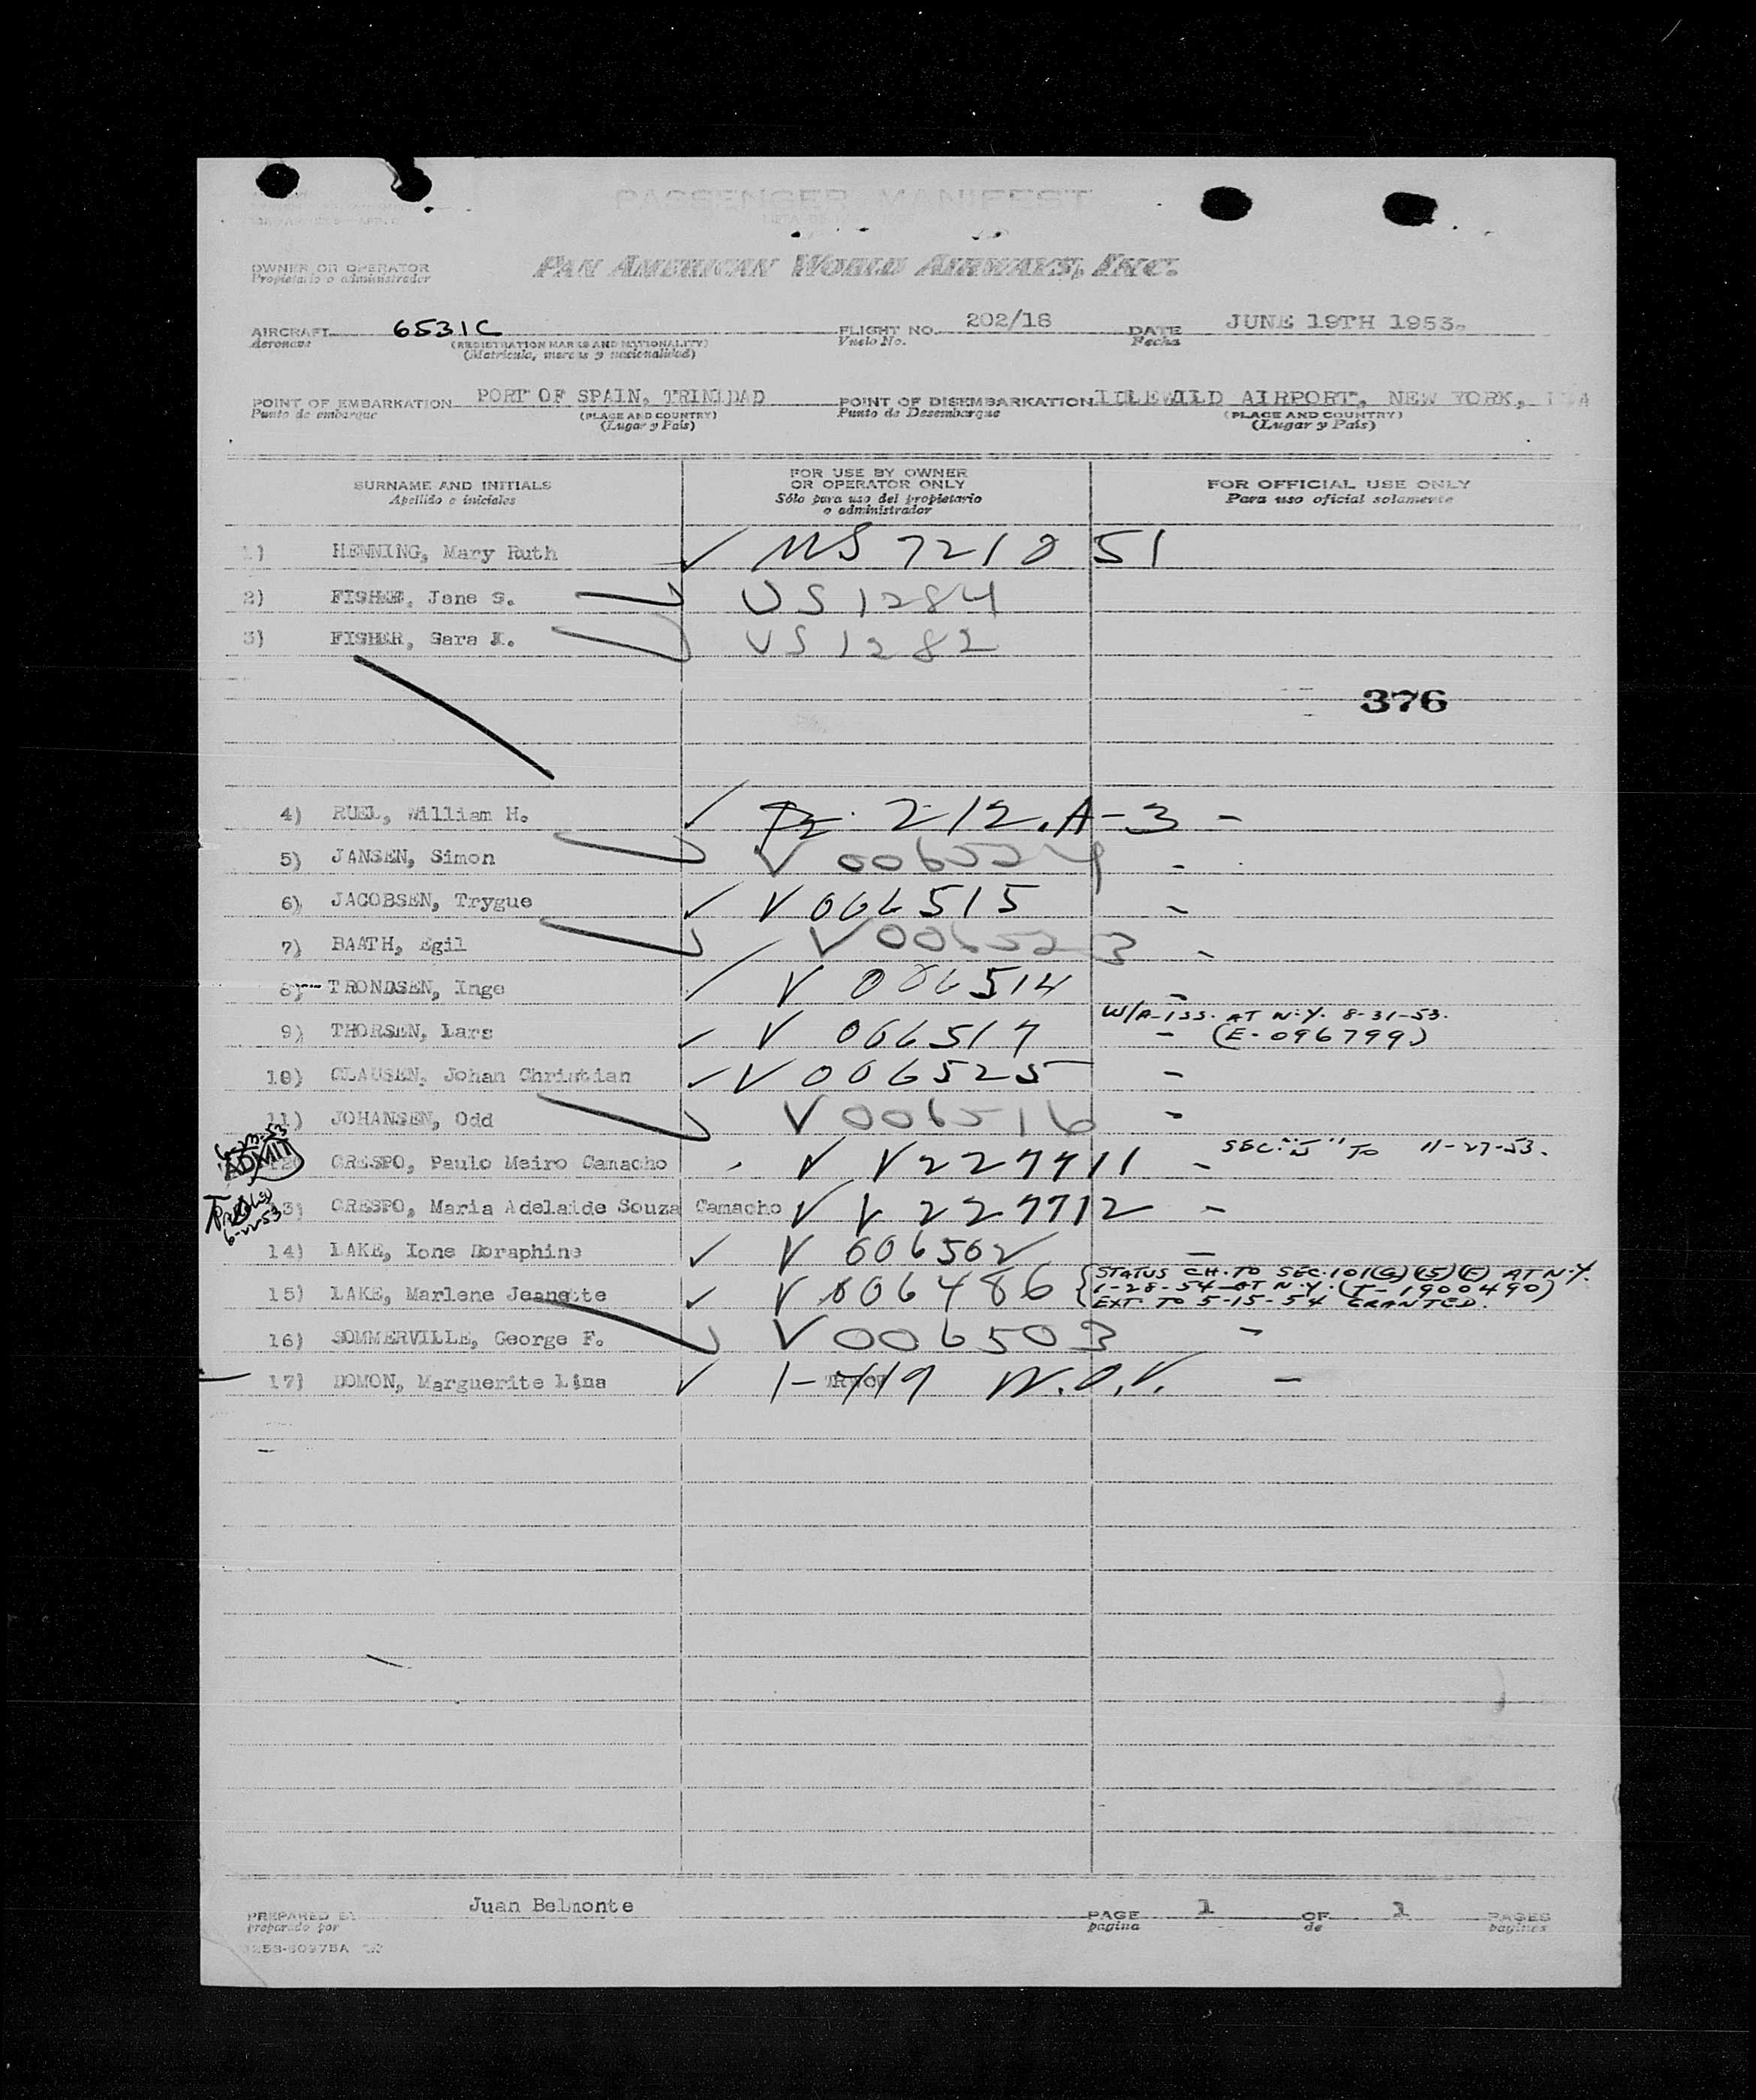 PASSENGER MANIFEST
OWNER OR OPERATOR
Propietario o administrador
PAN AMERICAN WORLD AIRWAYS, INC.
AIRCRAFT 6531C FLIGHT NO. 202/18 DATE JUNE 19TH 1953.
Aeronave (REGISTRATION MARKS AND NATIONALITY) Vuelo No. Fecha
(Matricula, marcas y nacionalidad)
POINT OF EMBARKATION PORT OF SPAIN, TRINIDAD POINT OF DISEMBARKATION IDLEWILD AIRPORT, NEW YORK,
Punto de embarque (PLACE AND COUNTRY) Punto de Desembarque (PLACE AND COUNTRY)
(Lugar y País) (Lugar y País)
SURNAME AND INITIALS FOR USE BY OWNER OR OPERATOR ONLY FOR OFFICIAL USE ONLY
Apellido e iniciales Sólo para uso del propietario o administrador Para uso oficial solamente
1) HENNING, Mary Ruth ✓ US 721851
2) FISHER, Jane S. US 1284
3) FISHER, Sara K. US 1282
376
4) RUEL, William H. ✓ 212.A-3 -
5) JANSEN, Simon V 006524 -
6) JACOBSEN, Trygue ✓ V 006515 -
7) BAATH, Egil V 006523 -
8) TRONDSEN, Inge ✓ V 006514 -
W/A-ISS. AT N.Y. 8-31-53.
9) THORSEN, Lars ✓ V 006517 - (E-096799)
10) CLAUSEN, Johan Christian ✓ V 006525 -
11) JOHANSEN, Odd V 006516 -
6-23-53
ADMIT
12) CRESPO, Paulo Meiro Camacho V V227711 - SEC. "J" TO 11-27-53.
13) CRESPO, Maria Adelaide Souza Camacho V V 227712 -
6-22-53
14) LAKE, Ione Doraphine ✓ V 006502 -
15) LAKE, Marlene Jeanette ✓ V 006486 {STATUS CH. TO SEC. 101(G)(15)(F) AT N.Y.
1-28-54 AT N.Y. (T-1900490)
EXT. TO 5-15-54 GRANTED.
16) SOMMERVILLE, George F. V 006503 -
17) DOMON, Marguerite Lina ✓ 1-719 W.O.V. -
PREPARED BY Juan Belmonte PAGE 1 OF 1 PAGES
preparado por pagina de paginas